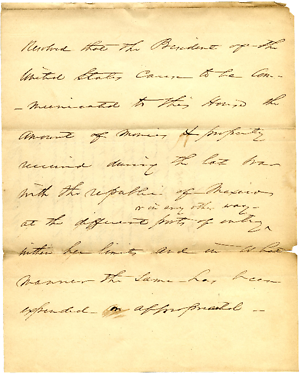 Resolved that the President of the
United States Cause to be Com-
-municated to this House the
amount of monies & property
received during the late War
with the republic of Mexico
or in any other way
at the different ports of entry
within her limits and in what
manner the same has been
expended or appropriated --